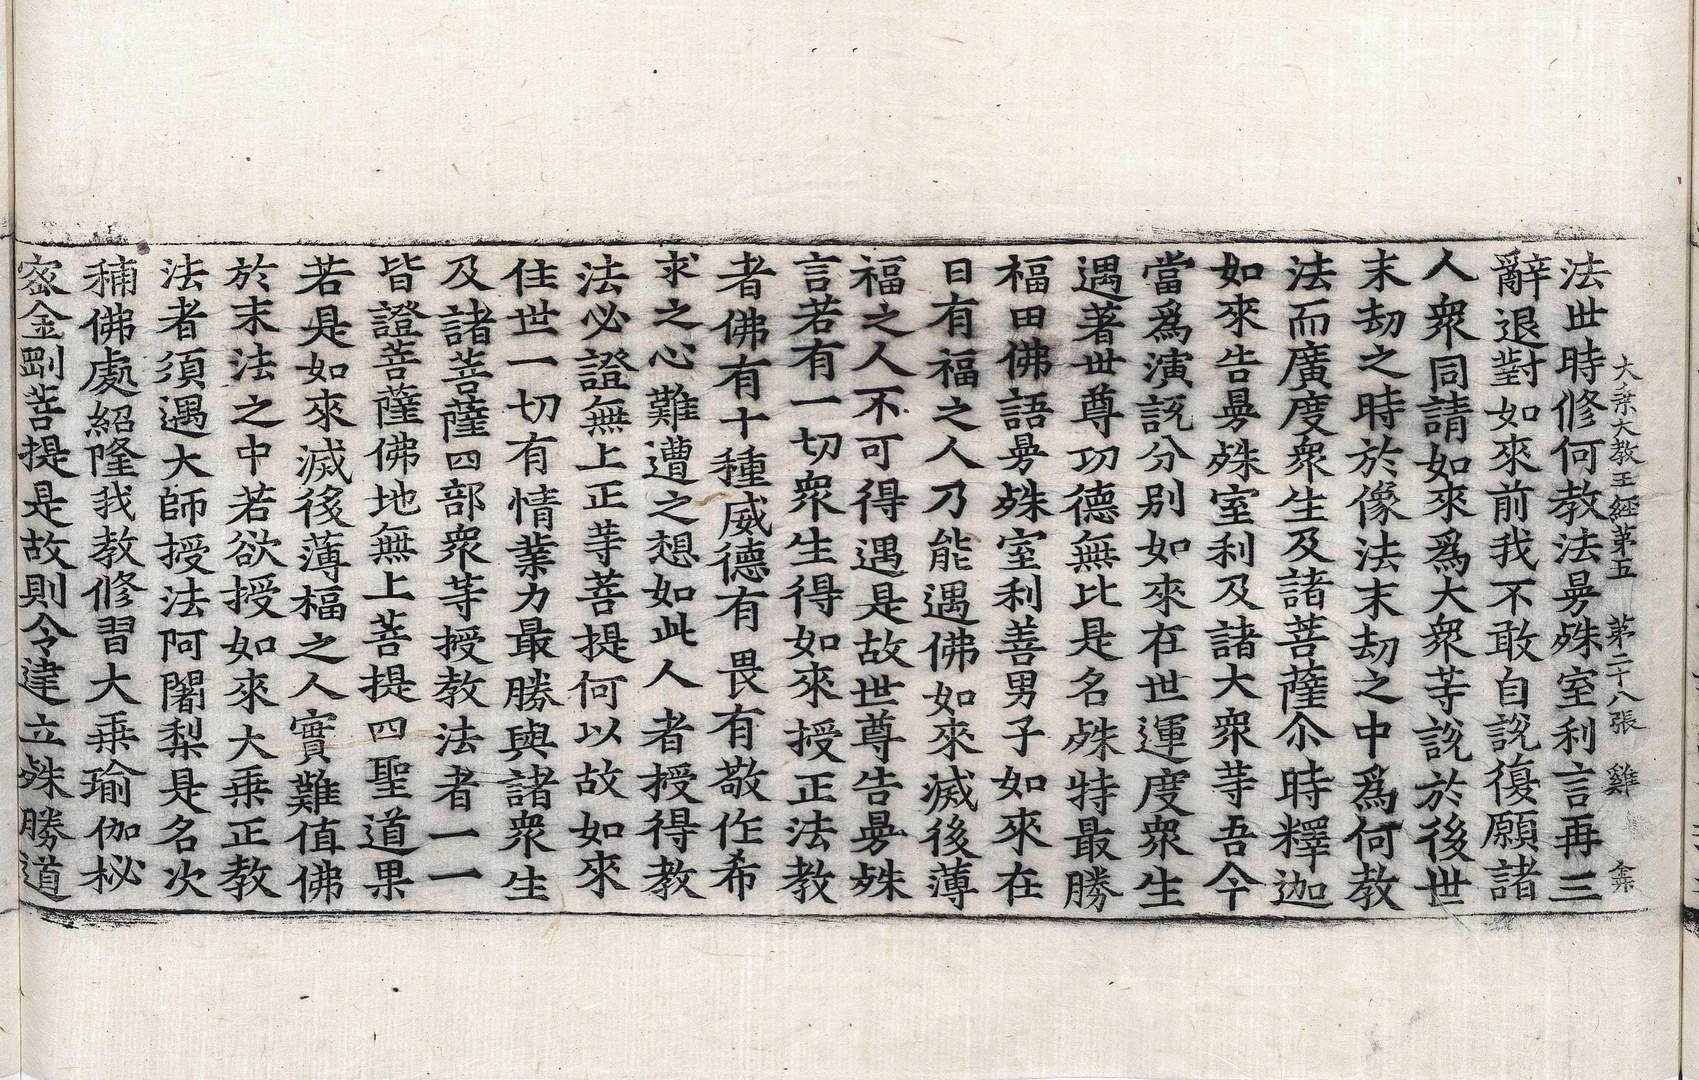 大乗大教王經第五 第二十八張 雞 弇
法世時修何教法曼殊室利言再三
辭退對如來前我不敢自說復願諸
人衆同請如來爲大衆等説於後世
末劫之時於像法末劫之中爲何教
法而廣度衆生及諸菩薩尒時釋迦
如來告曼殊室利及諸大衆等吾今
當爲演說分别如來在世運度衆生
遇著世尊功德無比是名殊特最勝
福田佛語曼殊室利善男子如來在
日有福之人乃能遇佛如來滅後薄
福之人不可得遇是故世尊告曼殊
言若有一切衆生得如來授正法教
者佛有十種威德有畏有敬作希
求之心難遭之想如此人者授得教
法必證無上正等菩提何以故如來
住世一切有情業力最勝與諸衆生
及諸菩薩四部衆等授教法者一一
皆證菩薩佛地無上菩提四聖道果
若是如來滅後薄福之人實難值佛
於末法之中若欲授如來大乗正教
法者須遇大師授法阿闍梨是名次
補佛處紹隆我教修習大乗瑜伽秘
密金剛菩提是故則令建立殊勝道